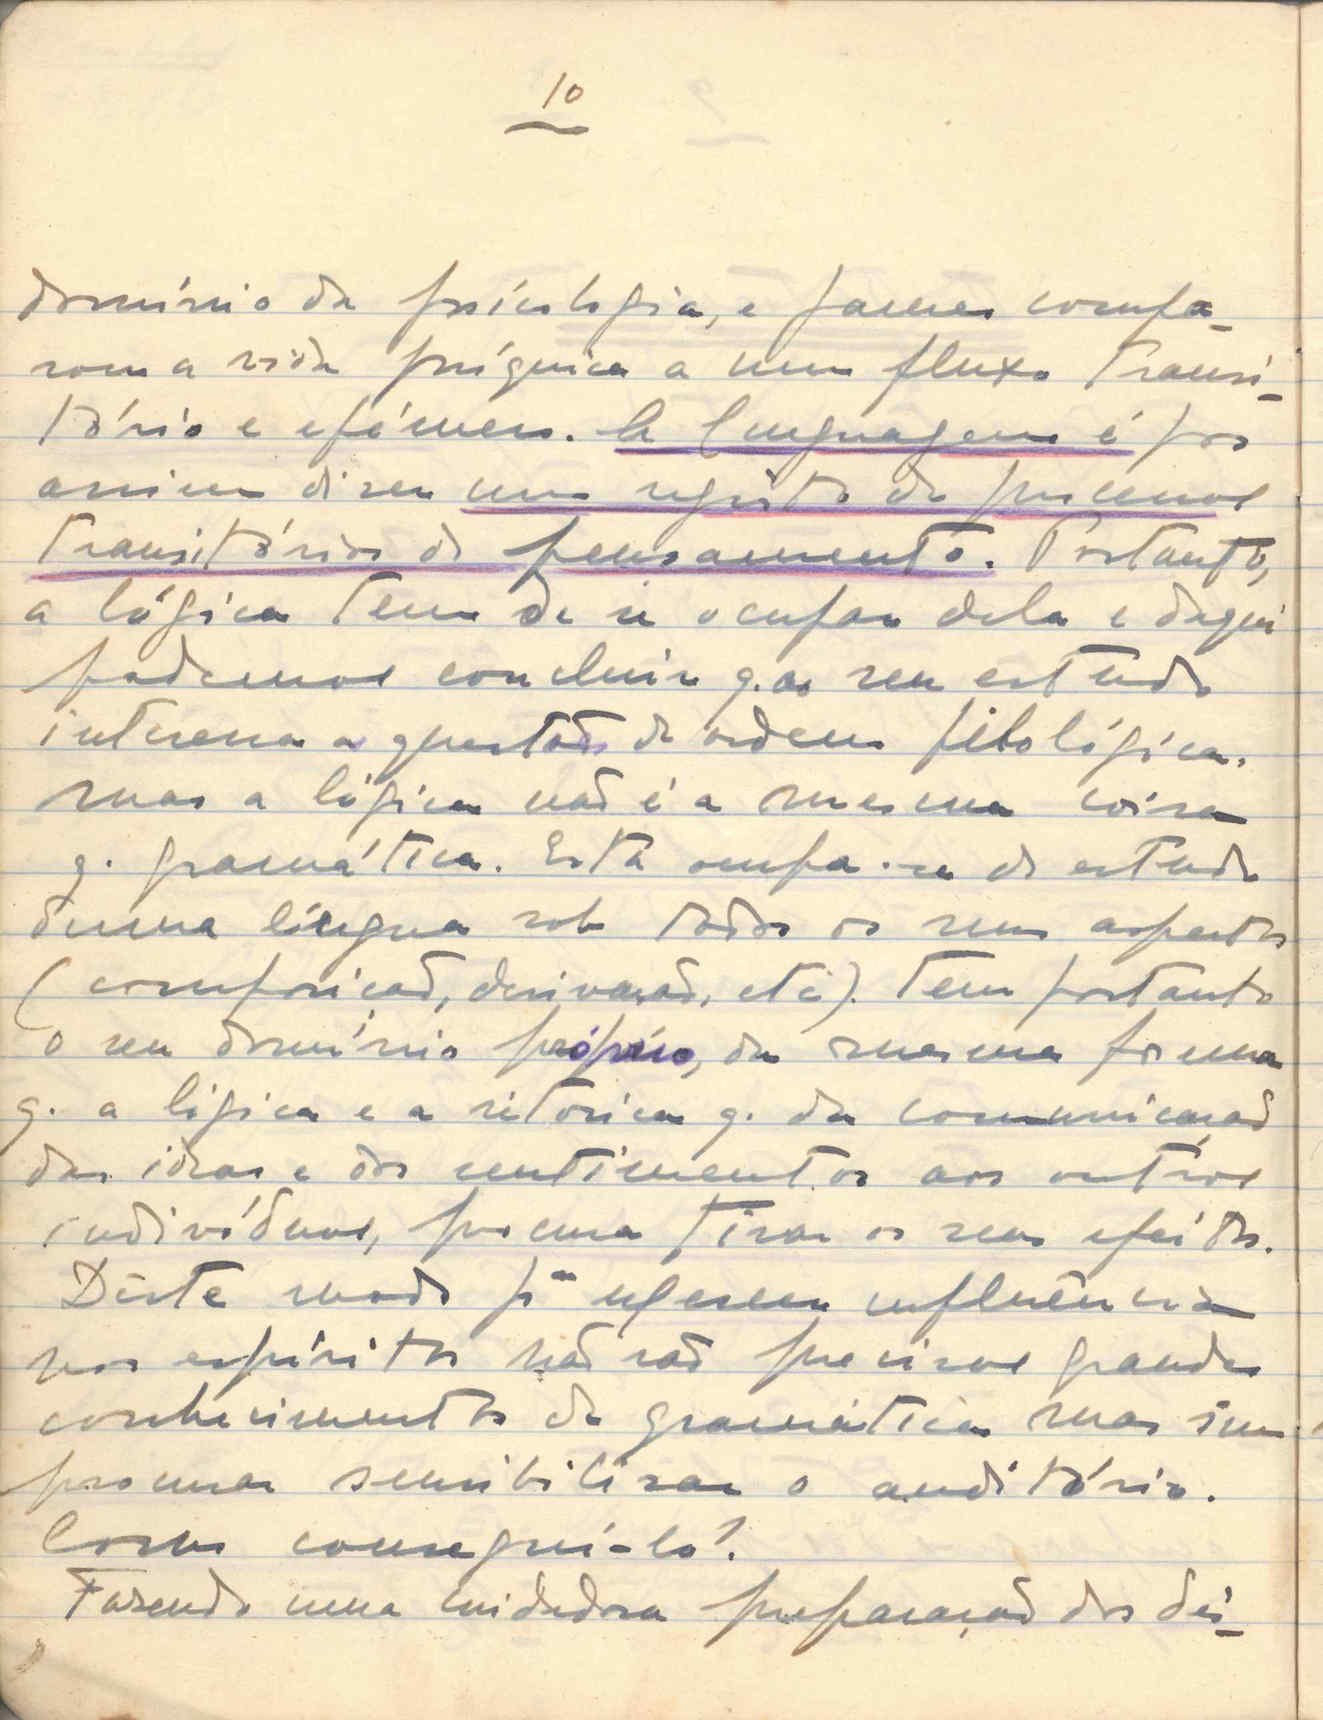 10
domínio da psicologia, e James compa-
rou a vida psíquica a um fluxo transi-
tório e efémero. A linguagem é por
assim dizer um registo de processos
transitórios de pensamento. Portanto,
a lógica tem de se ocupar dela e daqui
podemos concluir q. ao seu estudo
interessa a questão de ordem filológica.
Mas a lógica não é a mesma coisa
q. gramática. Esta ocupa-se do estudo
duma língua sob todos os seus aspectos
(composição, derivação, etc). Tem portanto
o seu domínio próprio, da mesma forma
q. a lógica e a retórica q. da comunicação
das ideas e dos sentimentos aos outros
indivíduos, procura tirar os seus efeitos.
Dêste modo pª exercer influência
nos espíritos não são precisos grandes
conhecimentos de gramática mas sim
procurar sensibilizar o auditório.
Como consegui-lo?
Fazendo uma cuidadosa preparação dos dis-